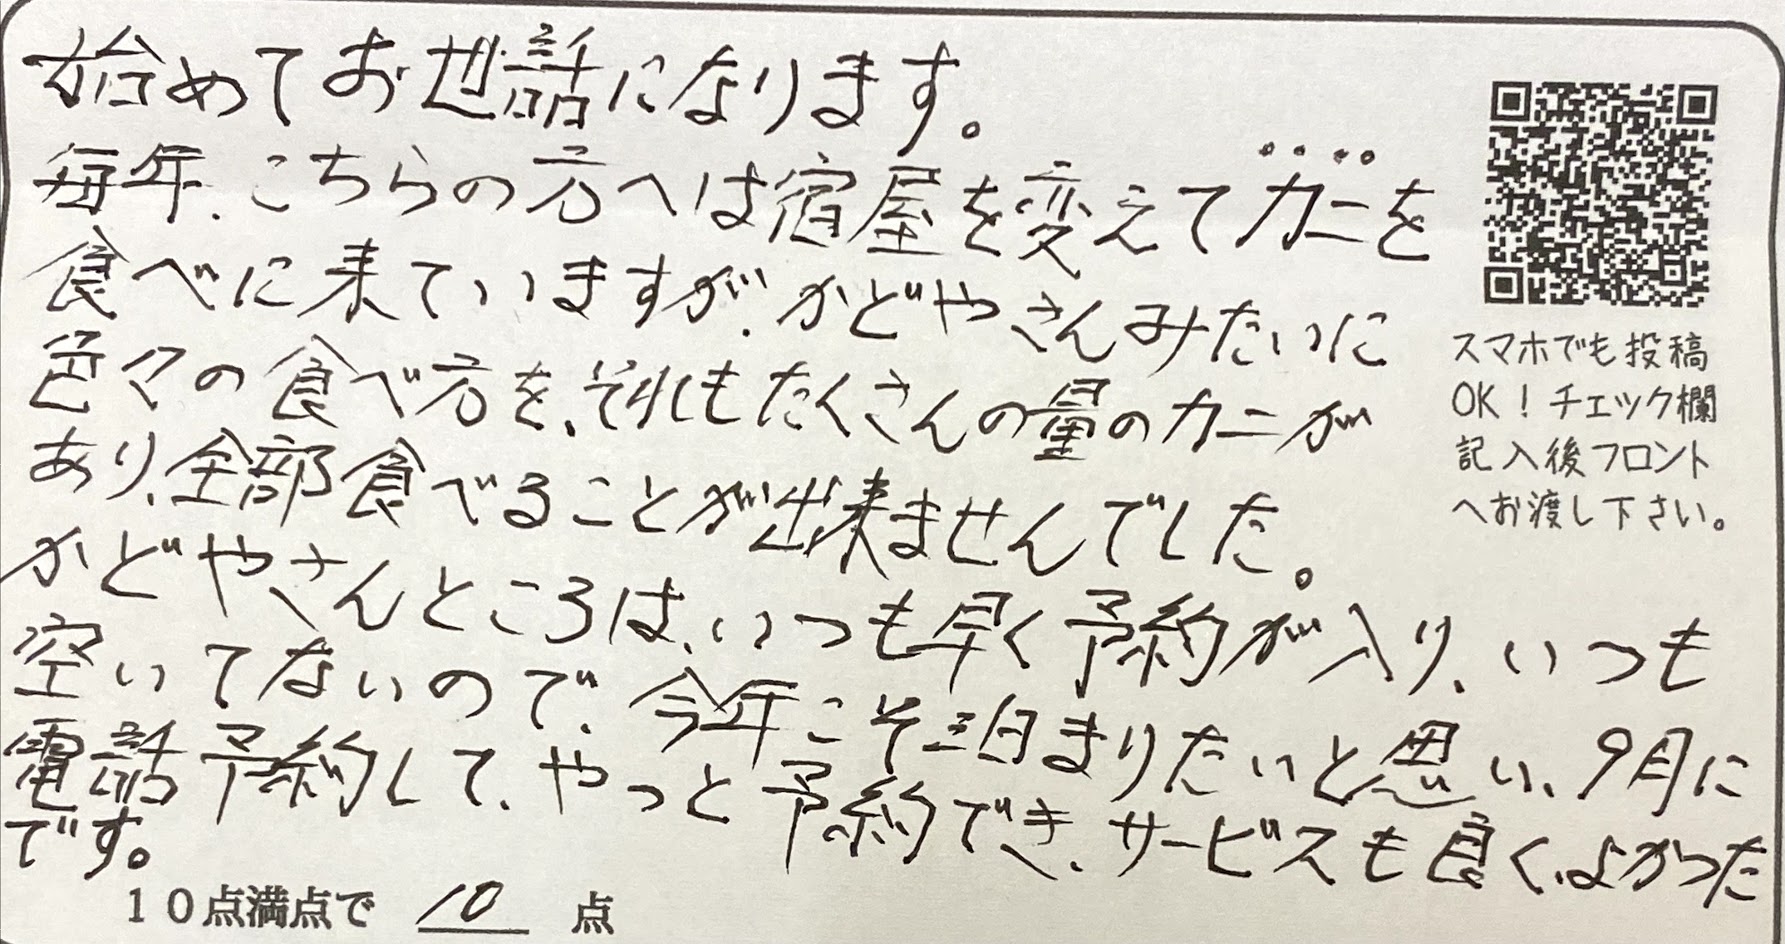 始めてお世話になります。
毎年、こちらの方へは宿屋を変えてカニを
食べに来ていますが、かどやさんみたいに
色々の食べ方を、それもたくさんの量のカニが
あり、全部食べることが出来ませんでした。
かどやさんところは、いつも早く予約が入り、いつも
空いてないので、今年こそ泊まりたいと思い、9月に
電話予約して、やっと予約でき、サービスも良く、よかった
です。
10点満点で 10 点
スマホでも投稿
OK!チェック欄
記入後フロント
へお渡し下さい。